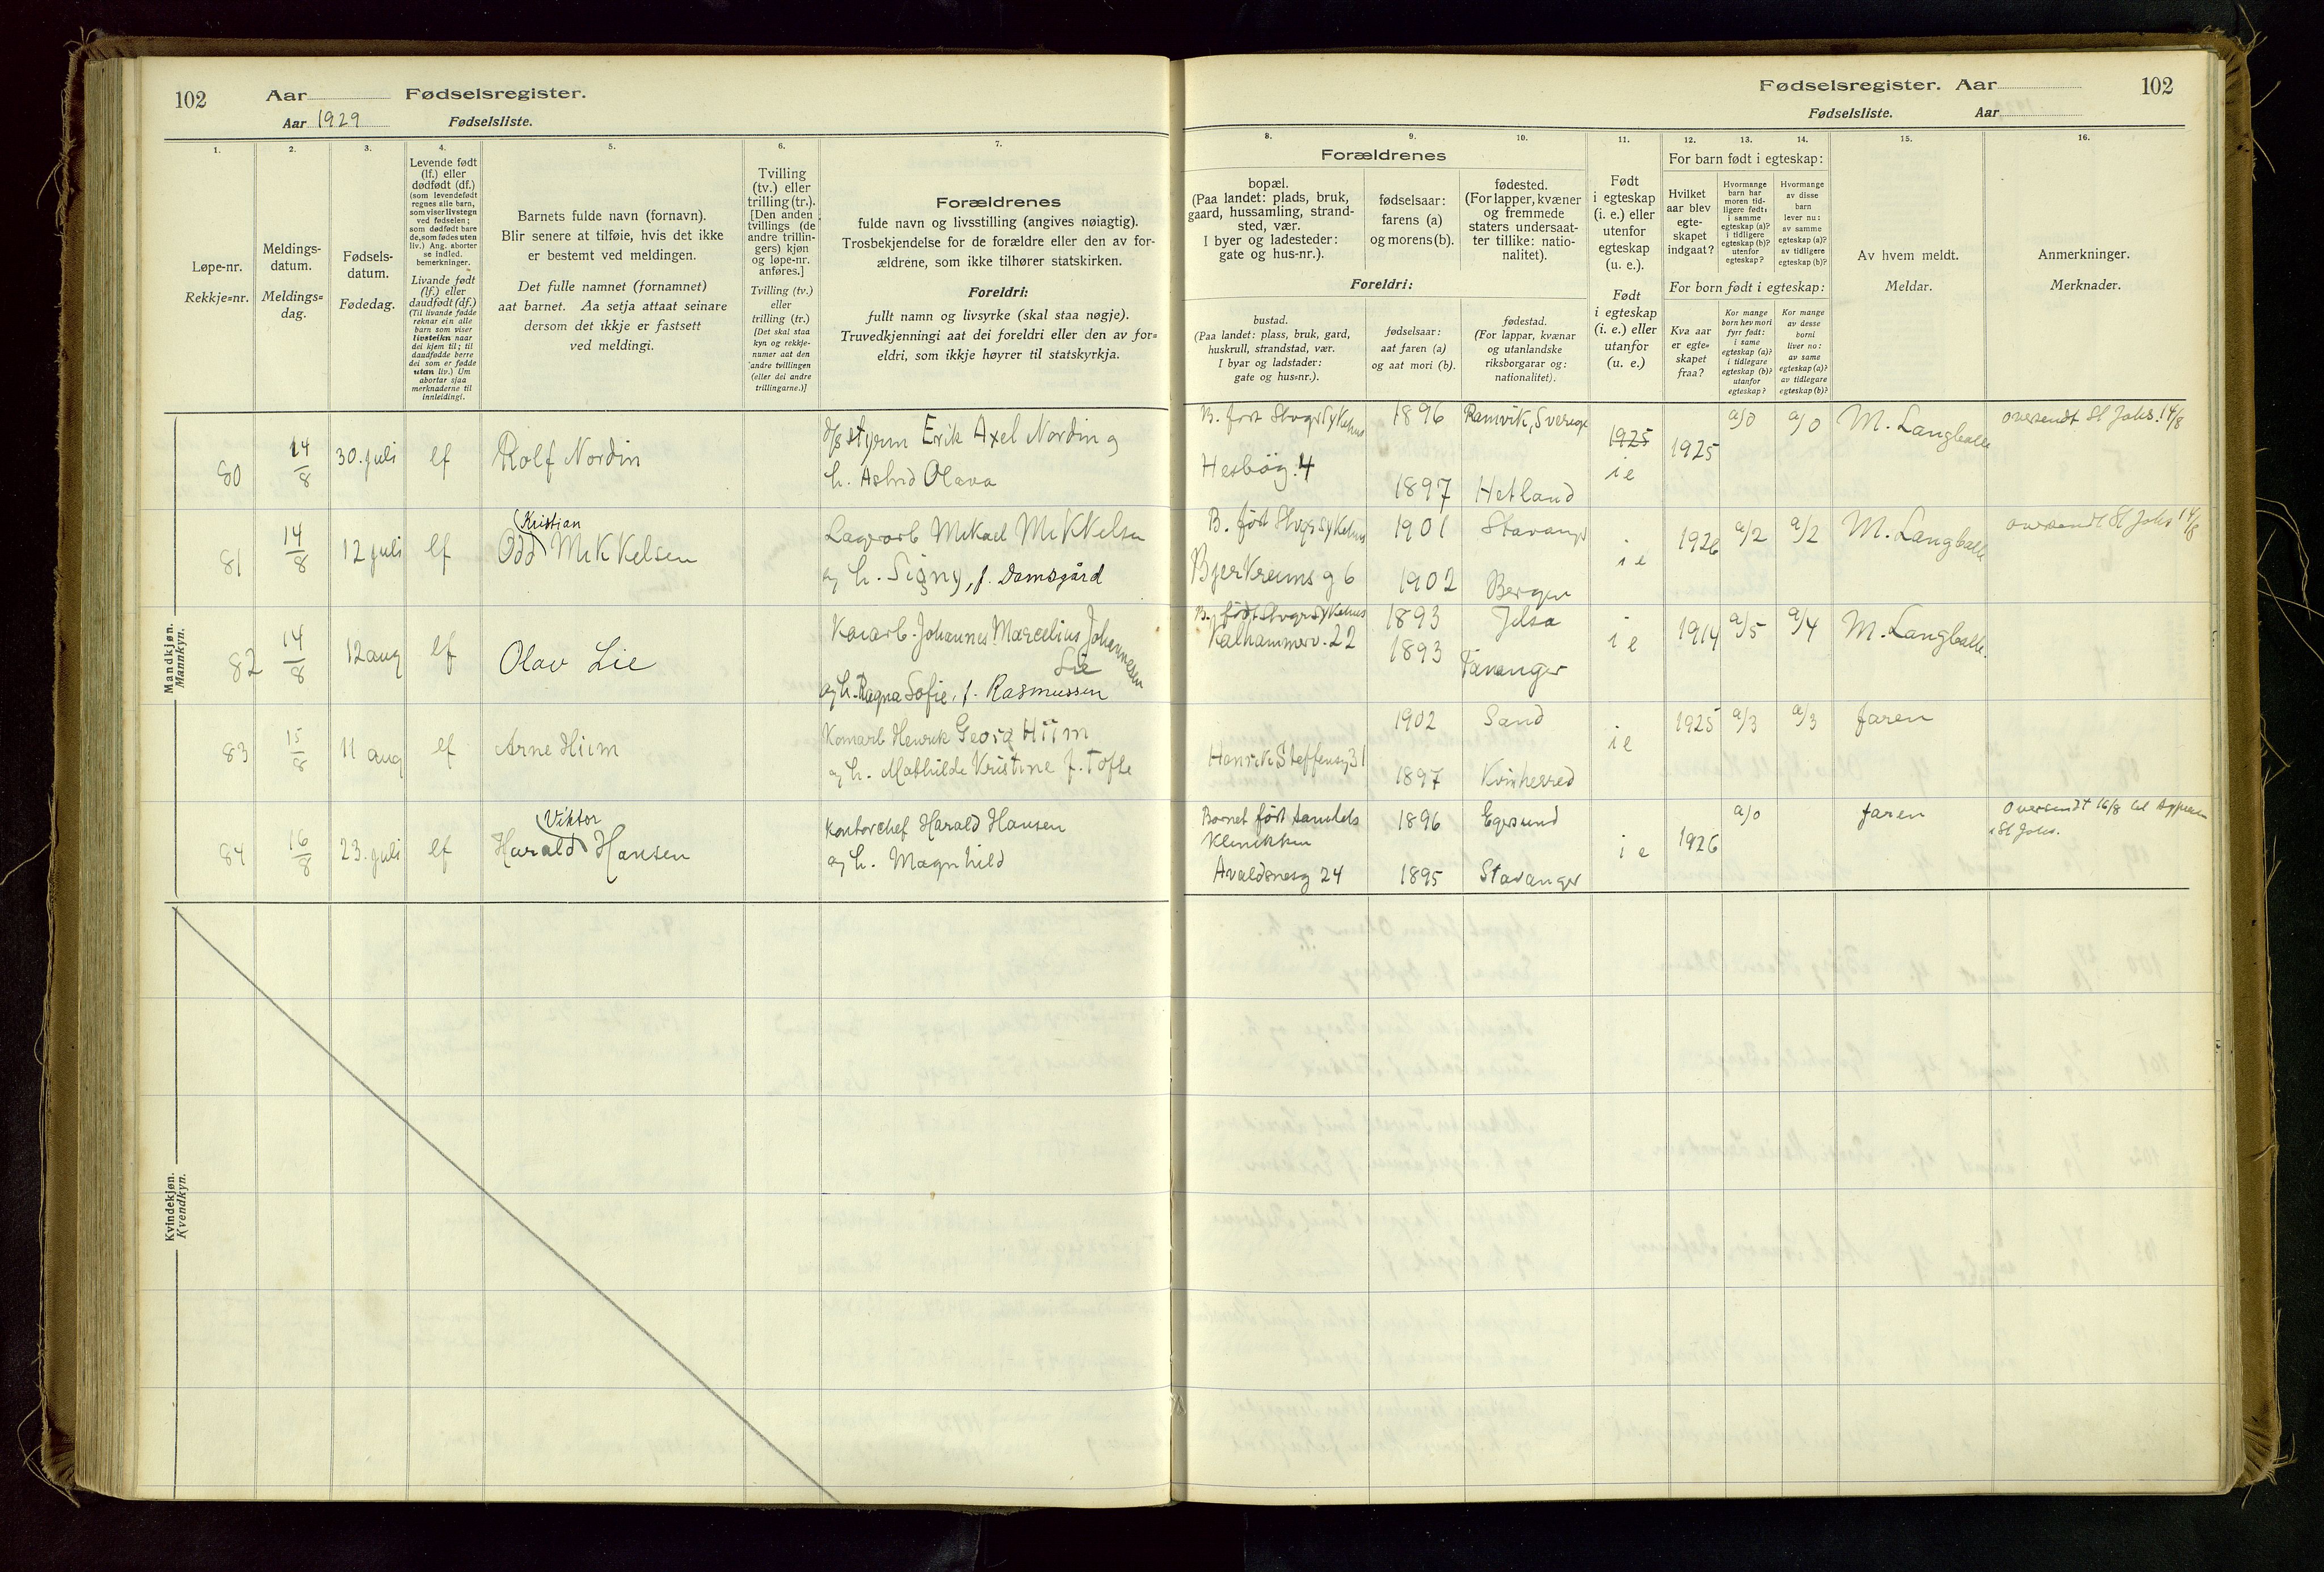 102
Aar
Fødselsregister.
Aar 1929
Fødselsliste.
1.
Løpe-nr.
Rekkje=nr.
2.
Meldings-
datum.
Meldings=
dag.
3.
Fødsels-
datum.
Fødedag.
4.
Levende født
(lf.) eller
dødfødt (df.)
(som levendefødt
regnes alle barn,
som viser livstegn
ved fødselen;
som dødfødt bare
de, som fødes uten
liv.) Ang. aborter
se indled.
bemerkninger.
Livande født
(lf.) eller
daudfødt (df.)
(Til livande fødde
reknar ein alle
barn som viser
livsteikn naar
dei kjem til; til
daudfødde berre
dei som er fødde
utan liv.) Um
abortar sjaa
merknaderne til
innleidingi.
5.
Barnets fulde navn (fornavn).
Blir senere at tilføie, hvis det ikke
er bestemt ved meldingen.
Det fulle namnet (fornamnet)
aat barnet. Aa setja attaat seinare
dersom det ikkje er fastsett
ved meldingi.
6.
Tvilling
(tv.) eller
trilling (tr.).
[Den anden
tvillings (de
andre trillin-
gers) kjøn
og løpe-nr.
anføres.]
Tvilling (tv.)
eller
trilling (tr.)
[Det skal staa
kyn og rekkje-
numer aat den
andre tvillingen
(eller dei andre
trillingarne.)]
7.
Forældrenes
fulde navn og livsstilling (angives nøiagtig).
Trosbekjendelse for de forældre eller den av for-
ældrene, som ikke tilhører statskirken.
Foreldri:
fullt namn og livsyrke (skal staa nøgje).
Truvedkjenningi aat dei foreldri eller den av for=
eldri, som ikkje høyrer til statskyrkja.
Mandkjøn.
Mannkyn.
80
14/8
30. juli
lf
Rolf Nordin
styrm Erik Axel Nordin og
h. Astrid Olava
81
14/8
12 juli
lf
Kristian
Odd Mikkelsen
Lagerarb Mikael Mikkelsen
og h. Signy, f. Damsgård
82
14/8
12 aug
lf
Olav Lie
Johannes Marcelius Johannessen
Lie
og h. Ragna Sofie, f. Rasmussen
83
15/8
11 aug
lf
Arne Hiim
Henrik Georg Hiim
og h. Mathilde Kristine f. Tofte
84
16/8
23. juli
lf
Viktor
Harald Hansen
Kontorchef Harald Hansen
og h. Magnhild
Kvindekjøn.
Kvendkyn.
Fødselsregister. Aar
102
Fødselsliste.
Aar
8.
Forældrenes
bopæl.
(Paa landet: plads, bruk,
gaard, hussamling, strand-
sted, vær.
I byer og ladesteder:
gate og hus-nr.).
Foreldri:
bustad.
(Paa landet: plass, bruk, gard,
huskrull, strandstad, vær.
I byar og ladstader:
gate og hus=nr.).
9.
fødselsaar:
farens (a)
og morens (b).
fødselsaar:
aat faren (a)
og aat mori (b).
10.
fødested.
(For lapper, kvæner
og fremmede
staters undersaat-
ter tillike: natio-
nalitet).
fødestad.
(For lappar, kvænar
og utanlandske
riksborgarar og:
nationalitet).
11.
Født
i egteskap
(i. e.) eller
utenfor
egteskap
(u. e.).
Født
i egteskap
(i. e.) eller
utanfor
(u. e.)
12.
13.
14.
For barn født i egteskap:
Hvilket
aar blev
egte-
skapet
indgaat?
Hvormange
barn har
moren tid-
ligere født:
i samme
egteskap (a)?
i tidligere
egteskap (b)?
utenfor
egteskap?
Hvormange
av disse
barn
lever nu:
av samme
egteskap (a)?
av tidligere
egteskap (b)?
For born født i egteskap:
Kva aar
er egte=
skapet
fraa?
Kor mange
born hev mori
fyrr født:
i same
egteskap (a)?
i tidlegare
egteskap (b)?
utanfor
egteskap?
Kor mange
av desse
borni
liver no:
av same
egteskap (a)?
av tidlegare
egteskap (b)?
15.
Av hvem meldt.
Meldar.
16.
Anmerkninger.
Merknader.
B. født Stvgr Sykehus
Hesbøg. 4
1896
1897
Ramvik, Sverige
Hetland
1925
i e
1925
a/0
a/0
M. Langballe
oversendt St Johs. 14/8
B. født Stvgr Sykehus
Bjerkreimsg 6
1901
1902
Stavanger
Bergen
i e
1926
a/2
a/2
M. Langballe
oversendt St Johs 14/8
B. født Stvgr Sykehus
Kalhammerv. 22
1893
1893
Jelsa
Tananger
i e
1914
a/5
a/4
M. Langballe.
Henrik Steffensg 31
1902
1897
Sand
Kvinherred
i e
1925
a/3
a/3
faren
Barnet født
Klinikken
Avaldsnesg 24
1896
1895
Egersund
Stavanger
i e
1926
a/0
faren
Oversendt 16/8 til
i St Johs.